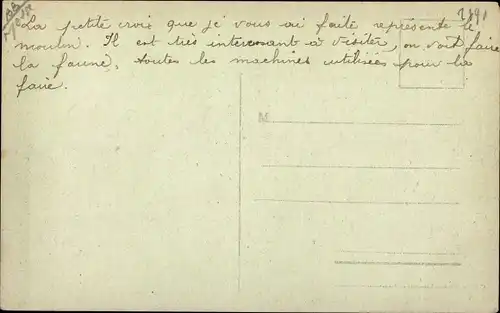 2191
La petite croix que je vous ai faite représente le
moulin. Il est très interessant à visiter, on voit faire
la farine, toutes les machines utilisées pour la
faire.
M